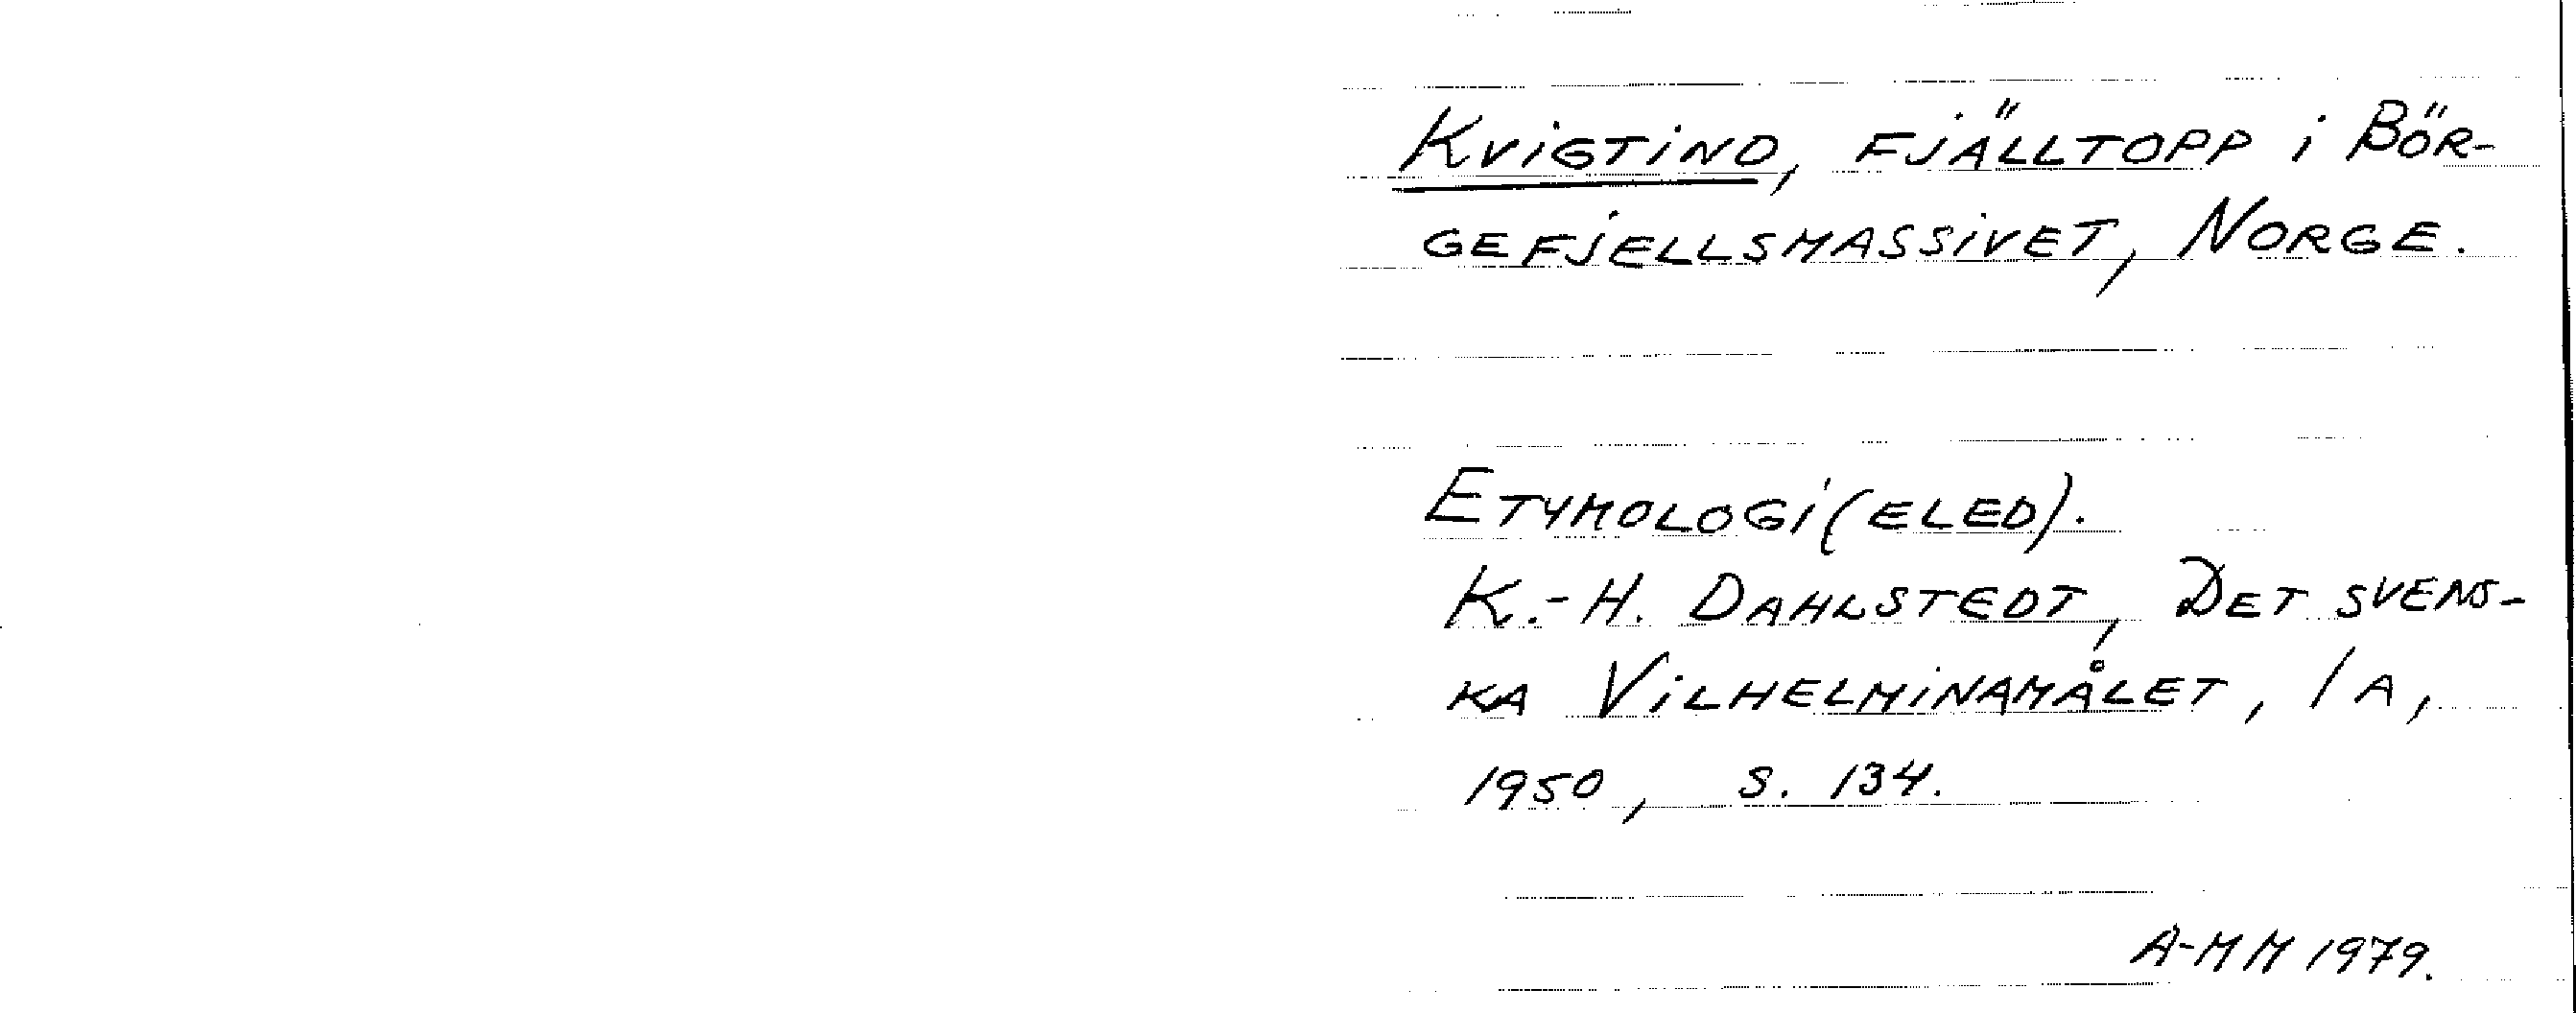 Kvigtind, fjälltopp i Bör-
gefjellsmassivet, Norge.
Etymologi (eled).
K.-H. Dahlstedt, Det svens-
ka Vilhelminamålet, 1 A,
1950, s. 134.
A-MM 1979.